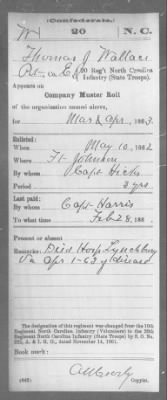 (Confederate.)
W 20 N.C.
Thomas J Wallace
Pvt Co E, 20 Reg't North Carolina
Infantry (State Troops).
Appears on
Company Muster Roll
of the organization named above,
for Mar & Apr, 1863.
Enlisted:
When May 10, 1862
Where Ft Johnson
By whom Capt Hicks
Period 3 yrs
Last paid:
By whom Capt Harris
To what time Feb 28, 186
Present or absent
Remarks: Died Hosp Lynchburg
Va Apr 1-63 of disease
The designation of this regiment was changed from the 10th
Regiment North Carolina Infantry (Volunteers) to the 20th
Regiment North Carolina Infantry (State Troops) by S. O. No.
222, A. & I. G. O., dated November 14, 1861.
Book mark:
(642)
Copyist.